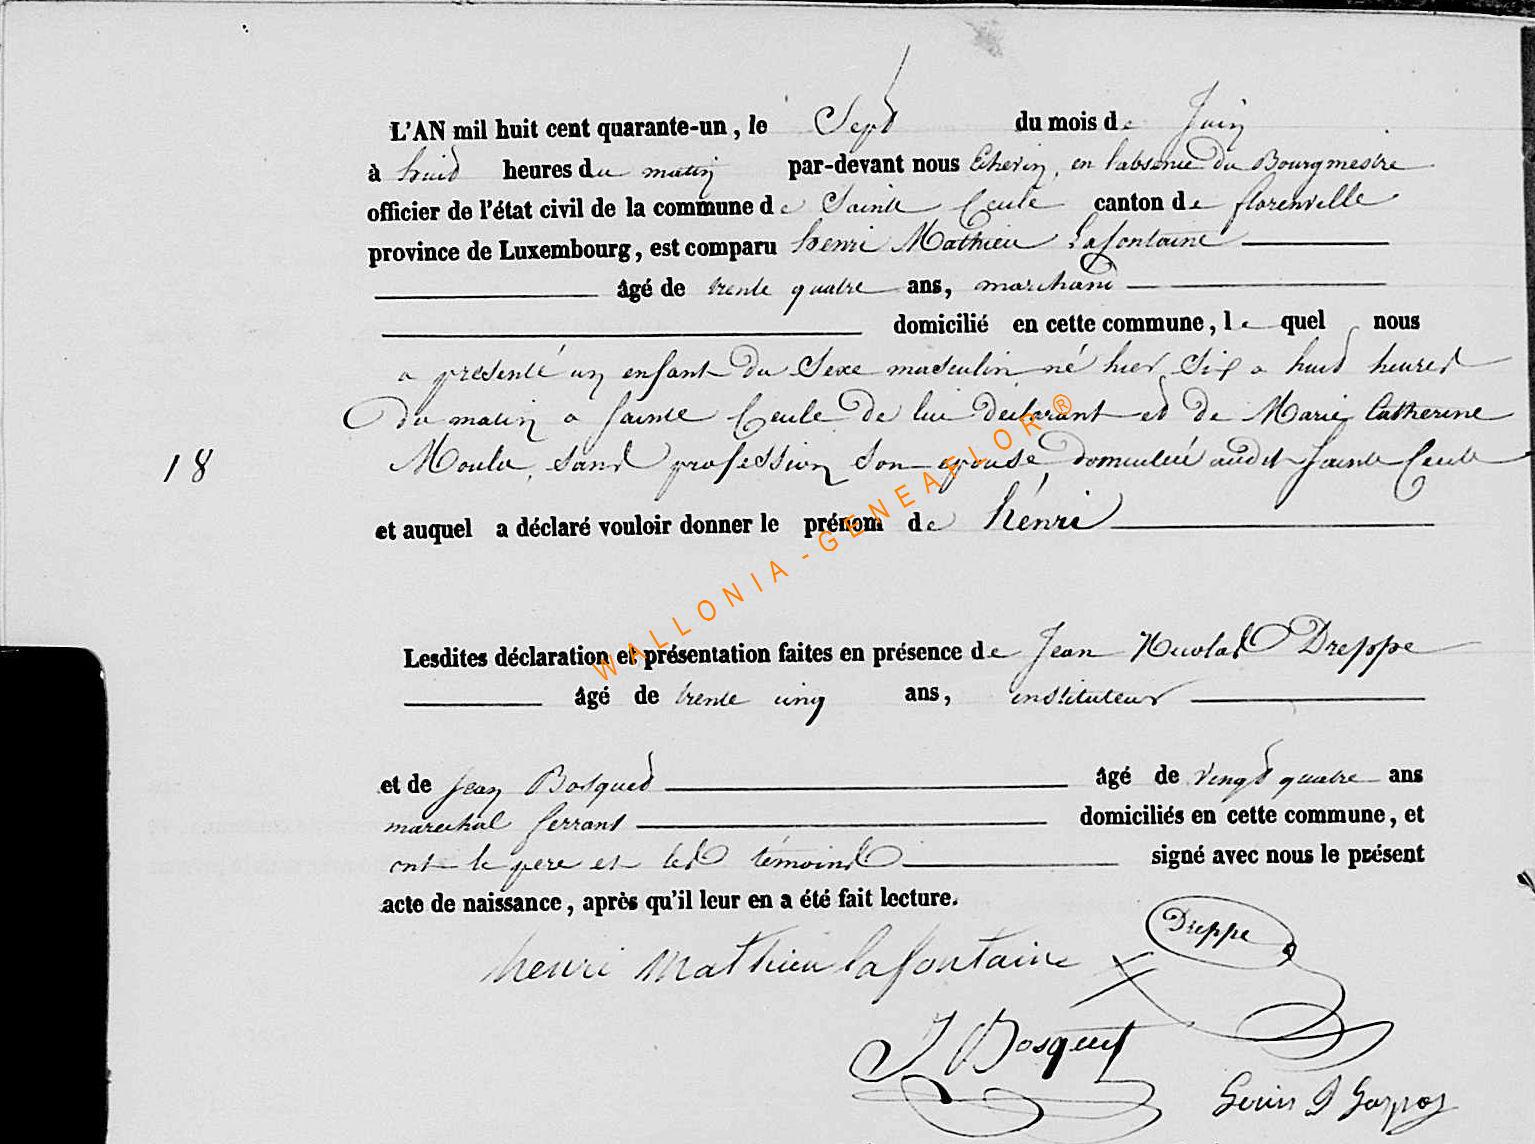 L'AN mil huit cent quarante-un, le Sept du mois de Juin
à huit heures du matin par-devant nous Echevin, en l'absence du Bourgmestre
officier de l'état civil de la commune de Sainte Cecile canton de florenville
province de Luxembourg, est comparu henri Mathieu Lafontaine
âgé de trente quatre ans, marchand
domicilié en cette commune, le quel nous
a présenté un enfant du Sexe masculin né hier Six a huit heures
du matin a Sainte Cecile de lui declarant et de Marie Catherine
18 Moula, sans profession son epouse, domiciliée audit Sainte Cecile
et auquel a déclaré vouloir donner le prénom de hénri
Lesdites déclaration et présentation faites en présence de Jean Nicolas Dreppe
âgé de trente cinq ans, instituteur
et de Jean Bosquet âgé de vingt quatre ans
marechal ferrant domiciliés en cette commune, et
ont le pere et les témoins signé avec nous le présent
acte de naissance, après qu'il leur en a été fait lecture.
Dreppe
henri Mathieu lafontaine
J Bosquet
WALLONIA - GENEAFLOR ®